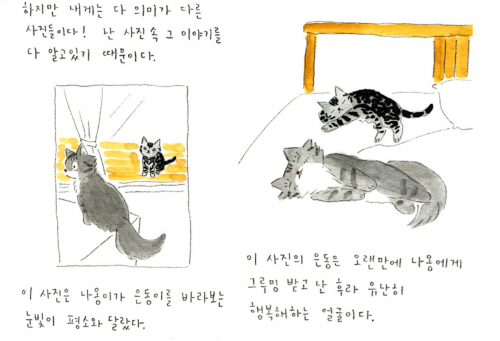 하지만 내게는 다 의미가 다른
사진들이다! 난 사진 속 그 이야기를
다 알고있기 때문이다.
이 사진은 나옹이가 은동이를 바라보는
눈빛이 평소와 달랐다.
이 사진의 은동은 오랜만에 나옹에게
그루밍 받고 난 후라 유난히
행복해하는 얼굴이다.